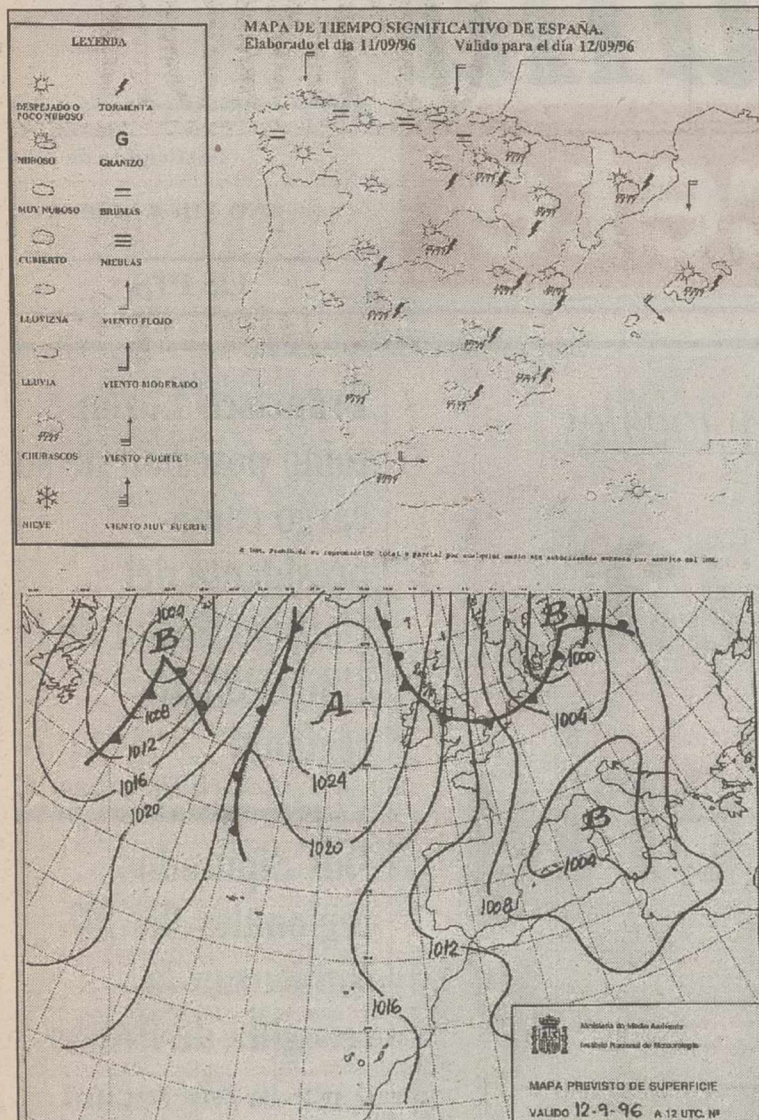 MAPA DE TIEMPO SIGNIFICATIVO DE ESPAÑA.
Elaborado el día 11/09/96 Válido para el día 12/09/96
LEYENDA
DESPEJADO O
POCO NUBOSO
TORMENTA
NUBOSO
G
GRANIZO
MUY NUBOSO
BRUMAS
CUBIERTO
NIEBLAS
LLOVIZNA
VIENTO FLOJO
LLUVIA
VIENTO MODERADO
CHUBASCOS
VIENTO FUERTE
NIEVE
VIENTO MUY FUERTE
Prohibida su reproducción total o parcial por cualquier medio sin autorización expresa por escrito del INM.
1004
B
1008
1012
1016
1020
A
1024
1020
B
1000
1004
B
1004
1008
1012
1016
Ministerio de Medio Ambiente
Instituto Nacional de Meteorología
MAPA PREVISTO DE SUPERFICIE
VALIDO 12-9-96 A 12 UTC. Nº